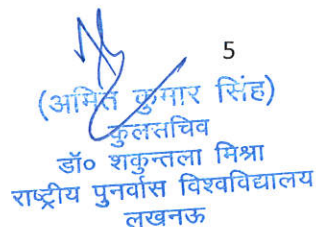 5
(अमित कुमार सिंह)
कुलसचिव
डॉ० शकुन्तला मिश्रा
राष्ट्रीय पुनर्वास विश्वविद्यालय
लखनऊ